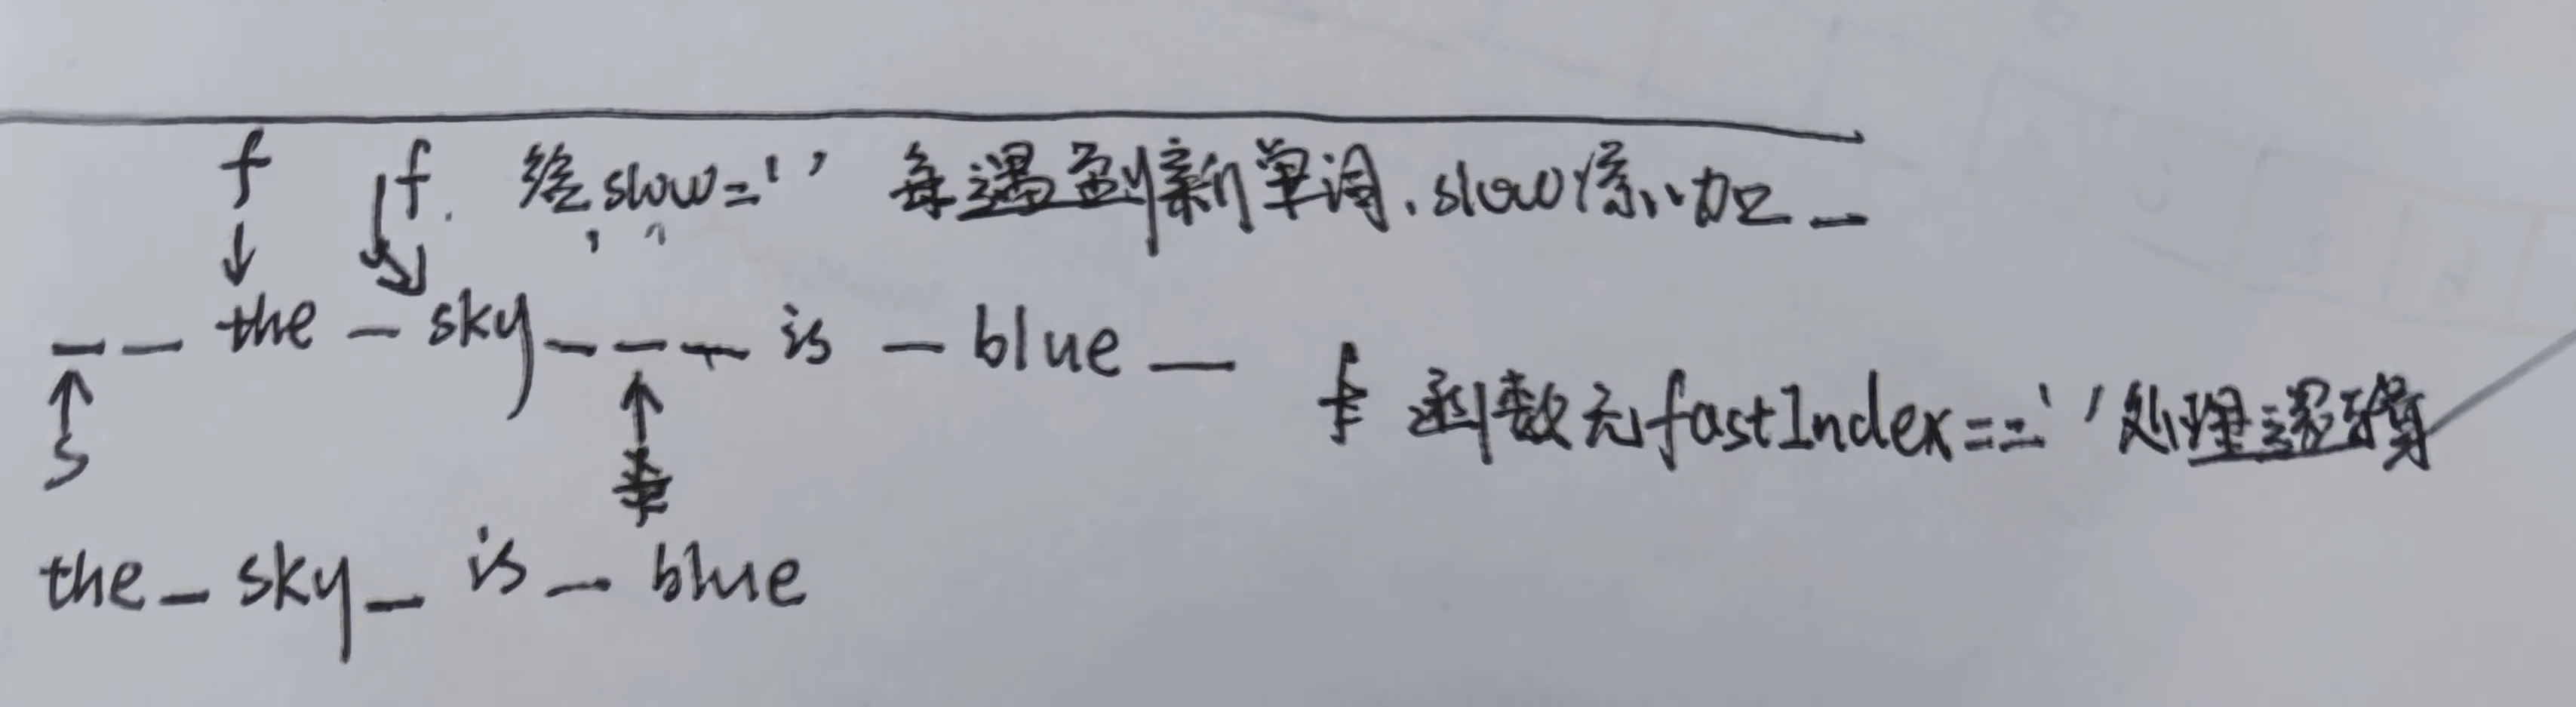 f f. 给slow=' ' 每遇到新单词,slow添加_
_ _ the _ sky _ _ _ is _ blue _
s 函数无fastIndex==' '处理逻辑
the _ sky _ is _ blue